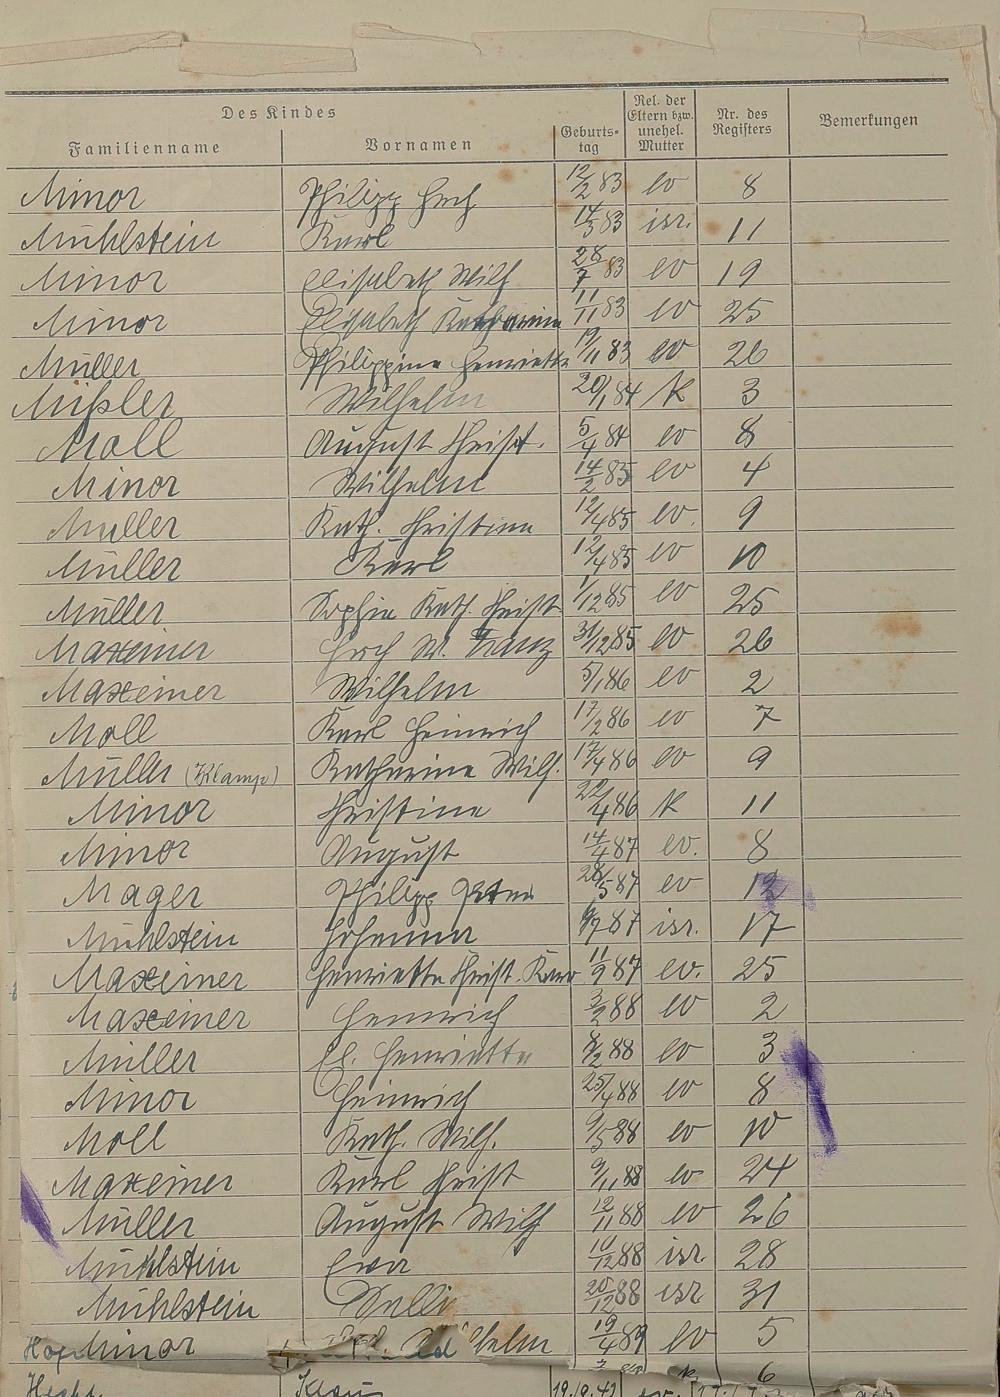 Des Kindes
Familienname Vornamen Geburts-tag Rel. der Eltern bzw. unehel. Mutter Nr. des Registers Bemerkungen
Minor Philipp Hch 12/2 83 ev 8
Mühlstein Karl 14/3 83 isr. 11
Minor Elisabeth Wilh 28/7 83 ev 19
Minor Elisabeth Katharina 11/11 83 ev 25
Müller Philippine Henriette 19/11 83 ev 26
Mißler Wilhelm 20/1 84 K 3
Moll August Christ. 5/4 84 ev 8
Minor Wilhelm 14/2 85 ev 4
Müller Kath. Christina 12/4 85 ev. 9
Müller Karl 12/4 85 ev 10
Müller Sophie Kath. Christ 1/12 85 ev 25
Maxeiner Hch W. Franz 31/12 85 ev 26
Maxeiner Wilhelm 5/1 86 ev 2
Moll Karl Heinrich 17/2 86 ev 7
Müller (Klamp) Katharine Wilh. 17/4 86 ev 9
Minor Christine 22/4 86 K 11
Minor August 14/4 87 ev. 8
Mager Philipp Peter 28/5 87 ev 12
Mühlstein Johanna 87 isr. 17
Maxeiner Henriette Christ. Karo 11/9 87 ev. 25
Maxeiner Heinrich 3/2 88 ev 2
Müller El. Henriette 8/2 88 ev 3
Minor Heinrich 25/4 88 ev 8
Moll Kath. Wilh. 9/5 88 ev 10
Maxeiner Karl Christ 9/11 88 ev 24
Müller August Wilh 12/11 88 ev 26
Mühlstein Eva 10/12 88 isr. 28
Mühlstein Salli 20/12 88 isr 31
Minor Wilhelm 19/4 89 ev 5
K 6
Klaus